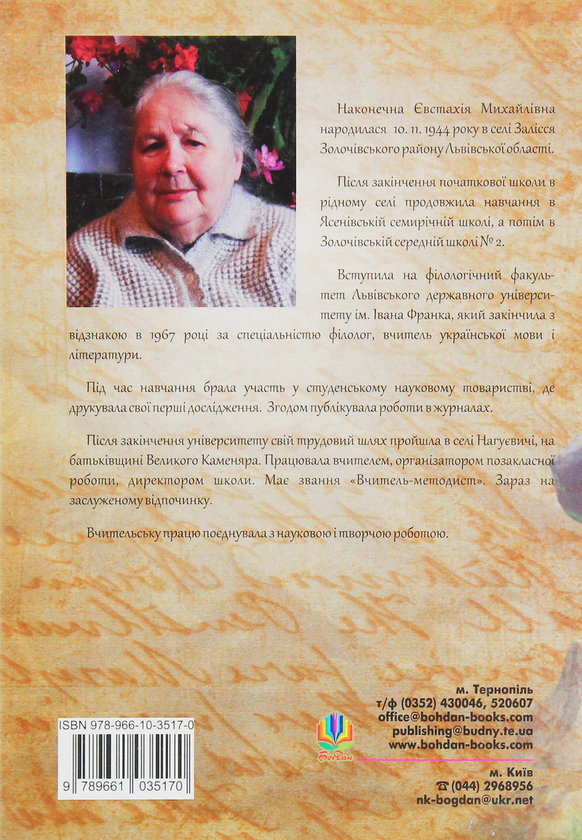 Наконечна Євстахія Михайлівна
народилася 10. 11. 1944 року в селі Залісся
Золочівського району Львівської області.
Після закінчення початкової школи в
рідному селі продовжила навчання в
Ясенівській семирічній школі, а потім в
Золочівській середній школі № 2.
Вступила на філологічний факуль-
тет Львівського державного універси-
тету ім. Івана Франка, який закінчила з
відзнакою в 1967 році за спеціальністю філолог, вчитель української мови і
літератури.
Під час навчання брала участь у студенському науковому товаристві, де
друкувала свої перші дослідження. Згодом публікувала роботи в журналах.
Після закінчення університету свій трудовий шлях пройшла в селі Нагуєвичі, на
батьківщині Великого Каменяра. Працювала вчителем, організатором позакласної
роботи, директором школи. Має звання «Вчитель-методист». Зараз на
заслуженому відпочинку.
Вчительську працю поєднувала з науковою і творчою роботою.
ISBN 978-966-10-3517-0
9 789661 035170
Богдан
м. Тернопіль
т/ф (0352) 430046, 520607
office@bohdan-books.com
publishing@budny.te.ua
www.bohdan-books.com
м. Київ
☎(044) 2968956
nk-bogdan@ukr.net